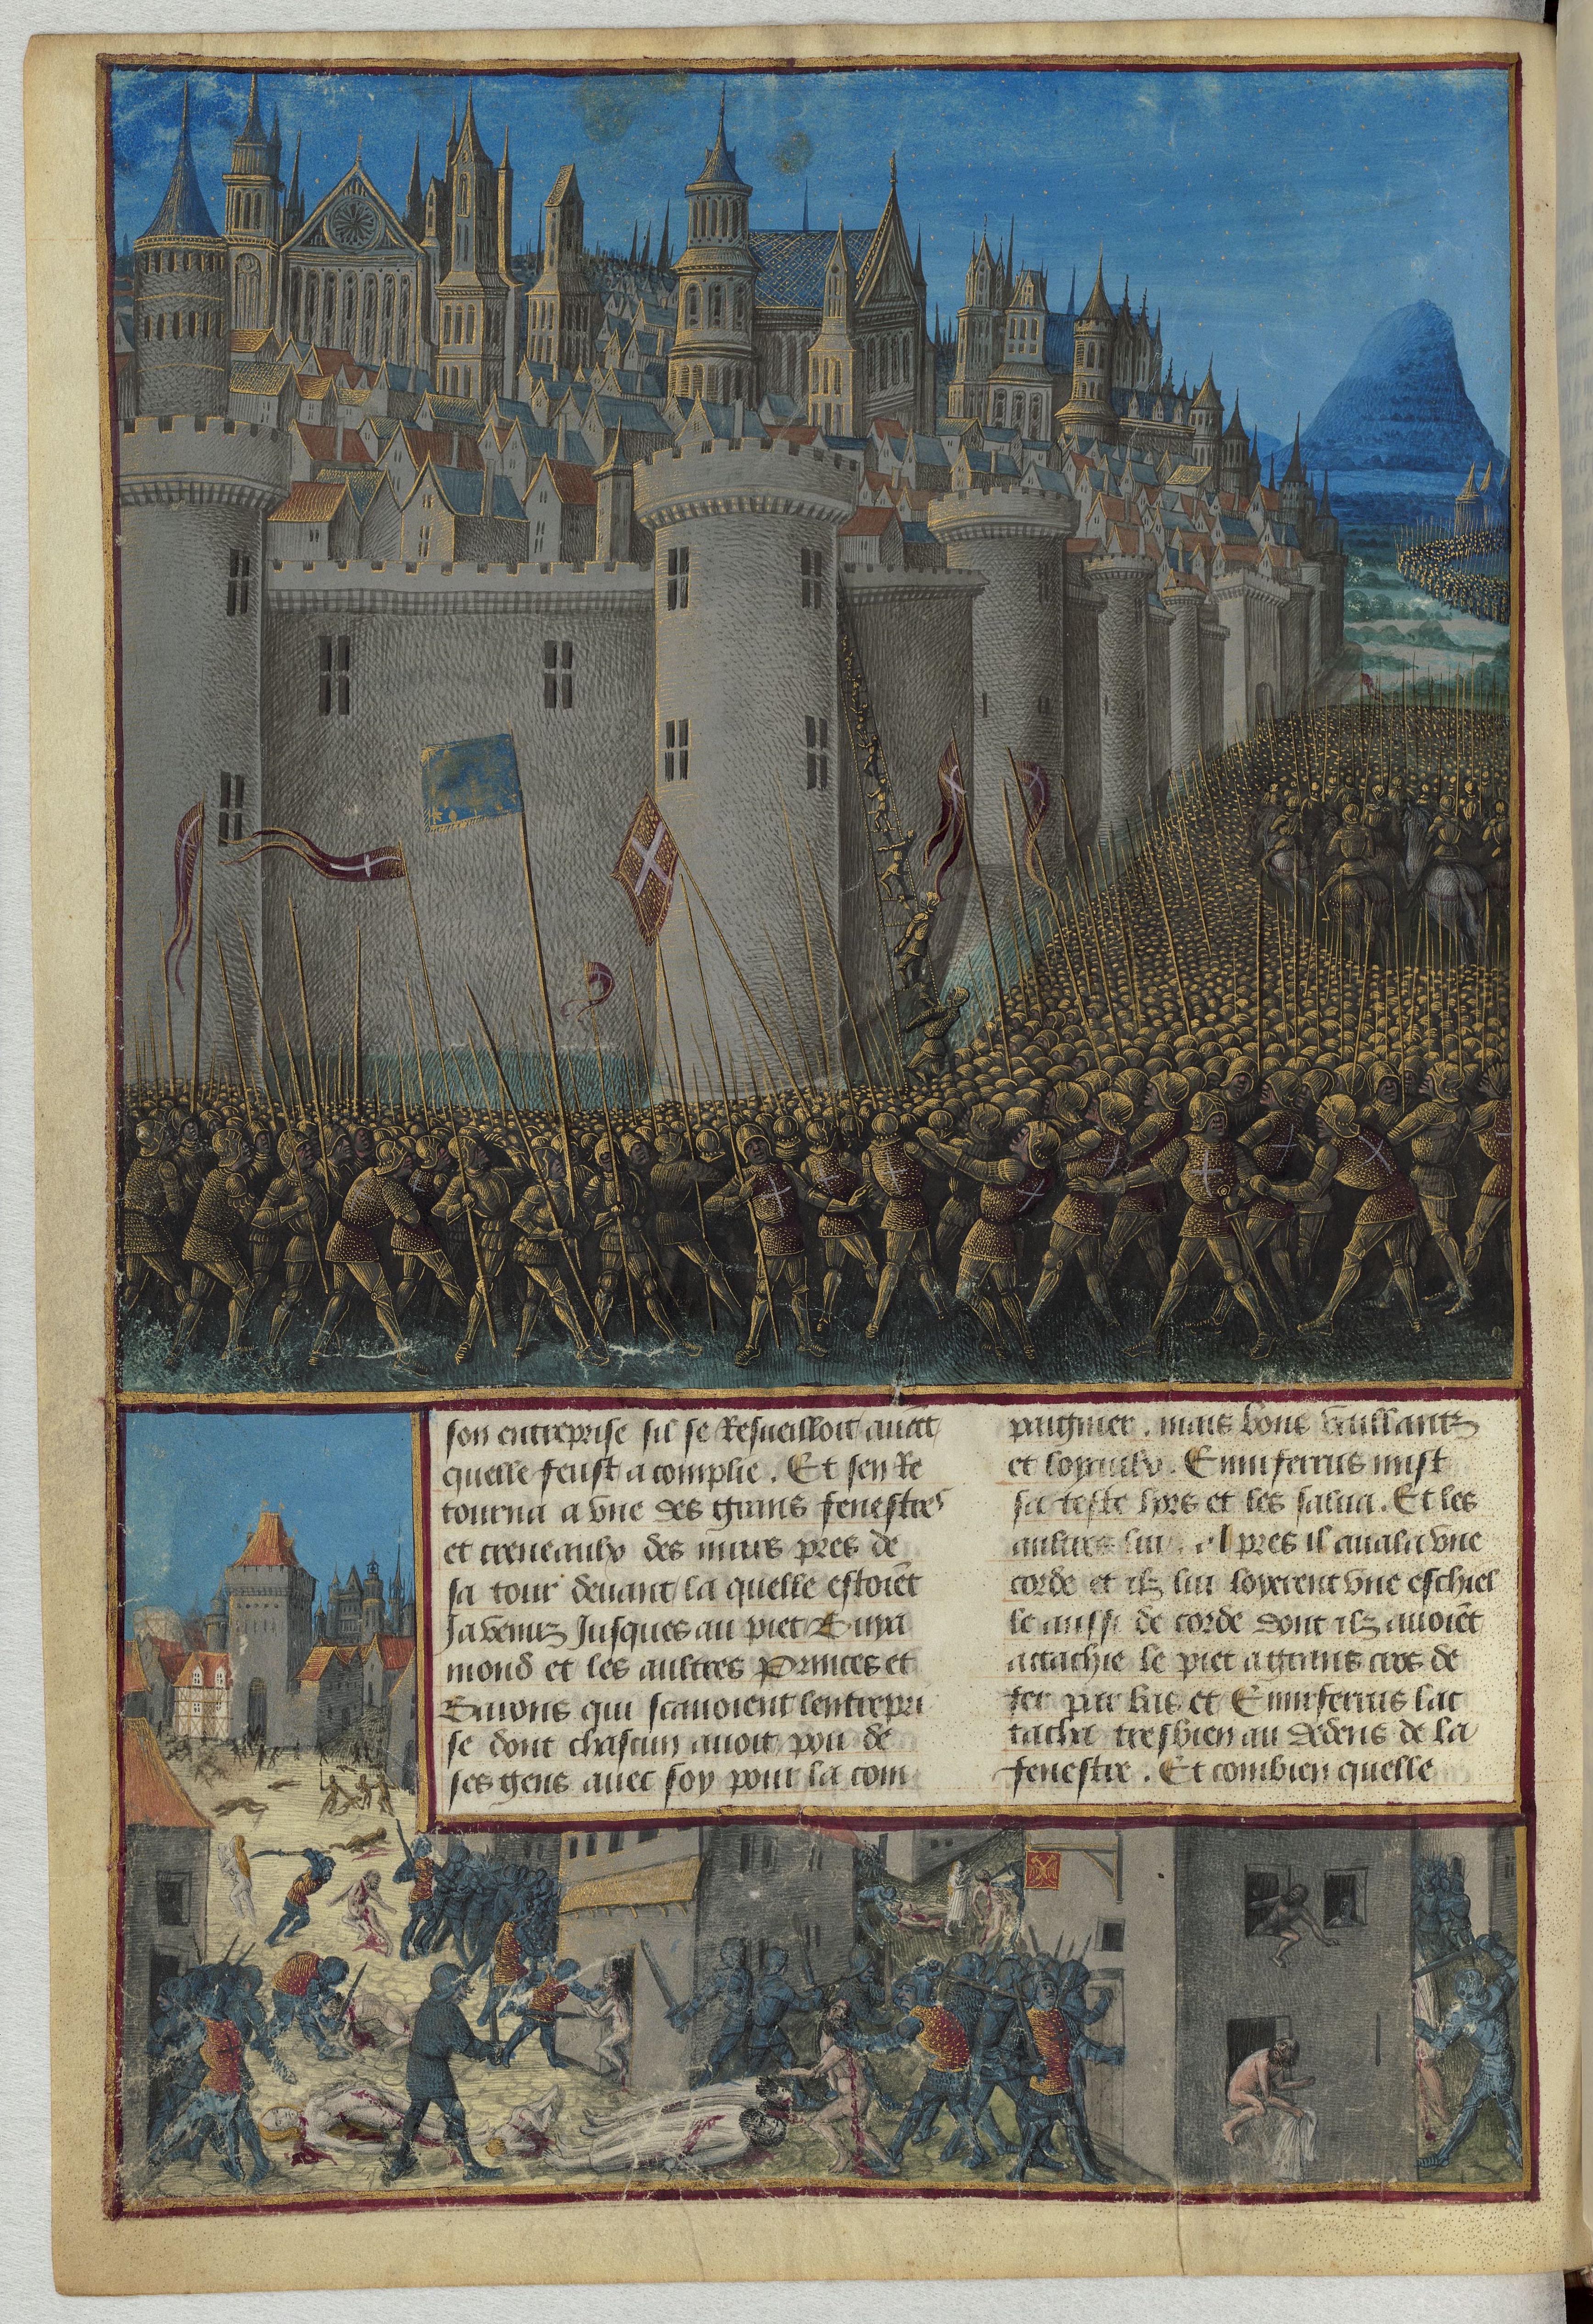 son entreprise sil se Resueilloit auãt
quelle feust acomplie . Et sen Re
tourna a vne des grans fenestres
et creneaulx des murs pres de
sa tour deuant la quelle estoiẽt
Ja venuz Jusques au piet Buya
mond et les aultres Princes et
Barons qui scauoient lentrepri
se dont chascun auoit pou de
ses gens auec soy pour la com
paignier . mais bons vaillantz
et loyaulx . Emirferrus mist
sa teste hors et les salua . Et les
aultres lui . Apres il auala vne
corde et ilz lui loyerent vne eschiel
le aussi de corde dont ilz auoiẽt
attachie le piet a grans cros de
fer par bas et Emirferrus lat
tacha tresbien au dedens de la
fenestre . Et combien quelle